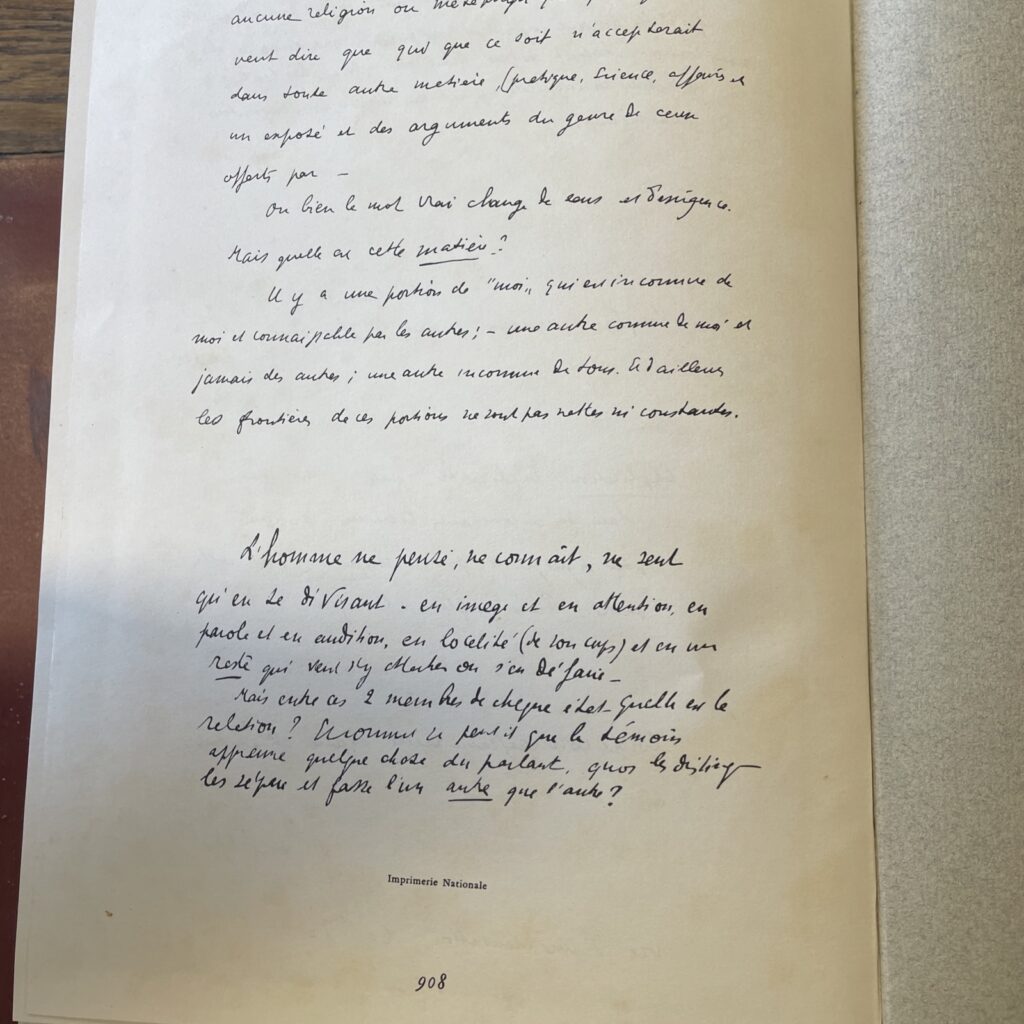 aucune religion ou
veut dire que qui que ce soit n'accepterait
dans toute autre matière, (pratique, science, affaires et
un exposé et des arguments du genre de ceux
offerts par –
Ou bien le mot Vrai change de sens et d'exigence.
Mais quelle est cette matière ?
Il y a une portion de "moi" qui est inconnue de
moi et connaissable par les autres ; – une autre connue de moi et
jamais des autres ; une autre inconnue de tous. Et d'ailleurs
les frontières de ces portions ne sont pas nettes ni constantes.
L'homme ne pense, ne connaît, ne sent
qu'en se divisant - en image et en attention, en
parole et en audition, en localité (de son corps) et en un
reste qui veut s'y attacher ou s'en défaire –
Mais entre ces 2 membres de chaque état – quelle est la
relation ? Comment se peut il que le témoin
apprenne quelque chose du parlant, quoi les distingue
les sépare et fasse l'un autre que l'autre ?
Imprimerie Nationale
908